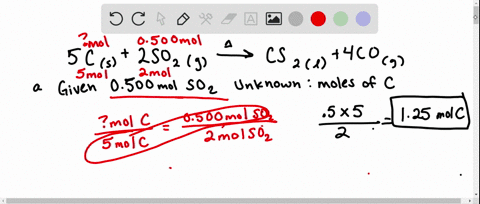 ?mol 0.500mol
5C(s) + 2SO2(g) Δ→ CS2(l) + 4CO(g)
5mol 2mol
a Given 0.500 mol SO2 Unknown: moles of C
?mol C / 5 mol C = 0.500mol SO2 / 2 mol SO2
.5 x 5 / 2 = 1.25 mol C